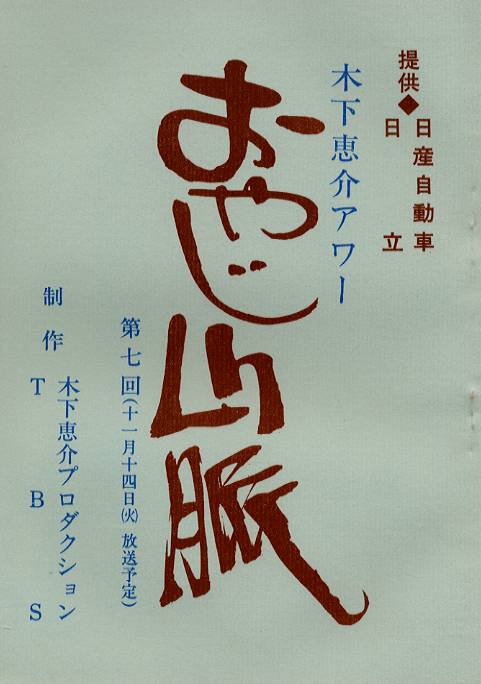 提供◆日産自動車
日立
木下恵介アワー
おやじ山脈
第七回(十一月十四日㈫放送予定)
制作 木下恵介プロダクション
TBS